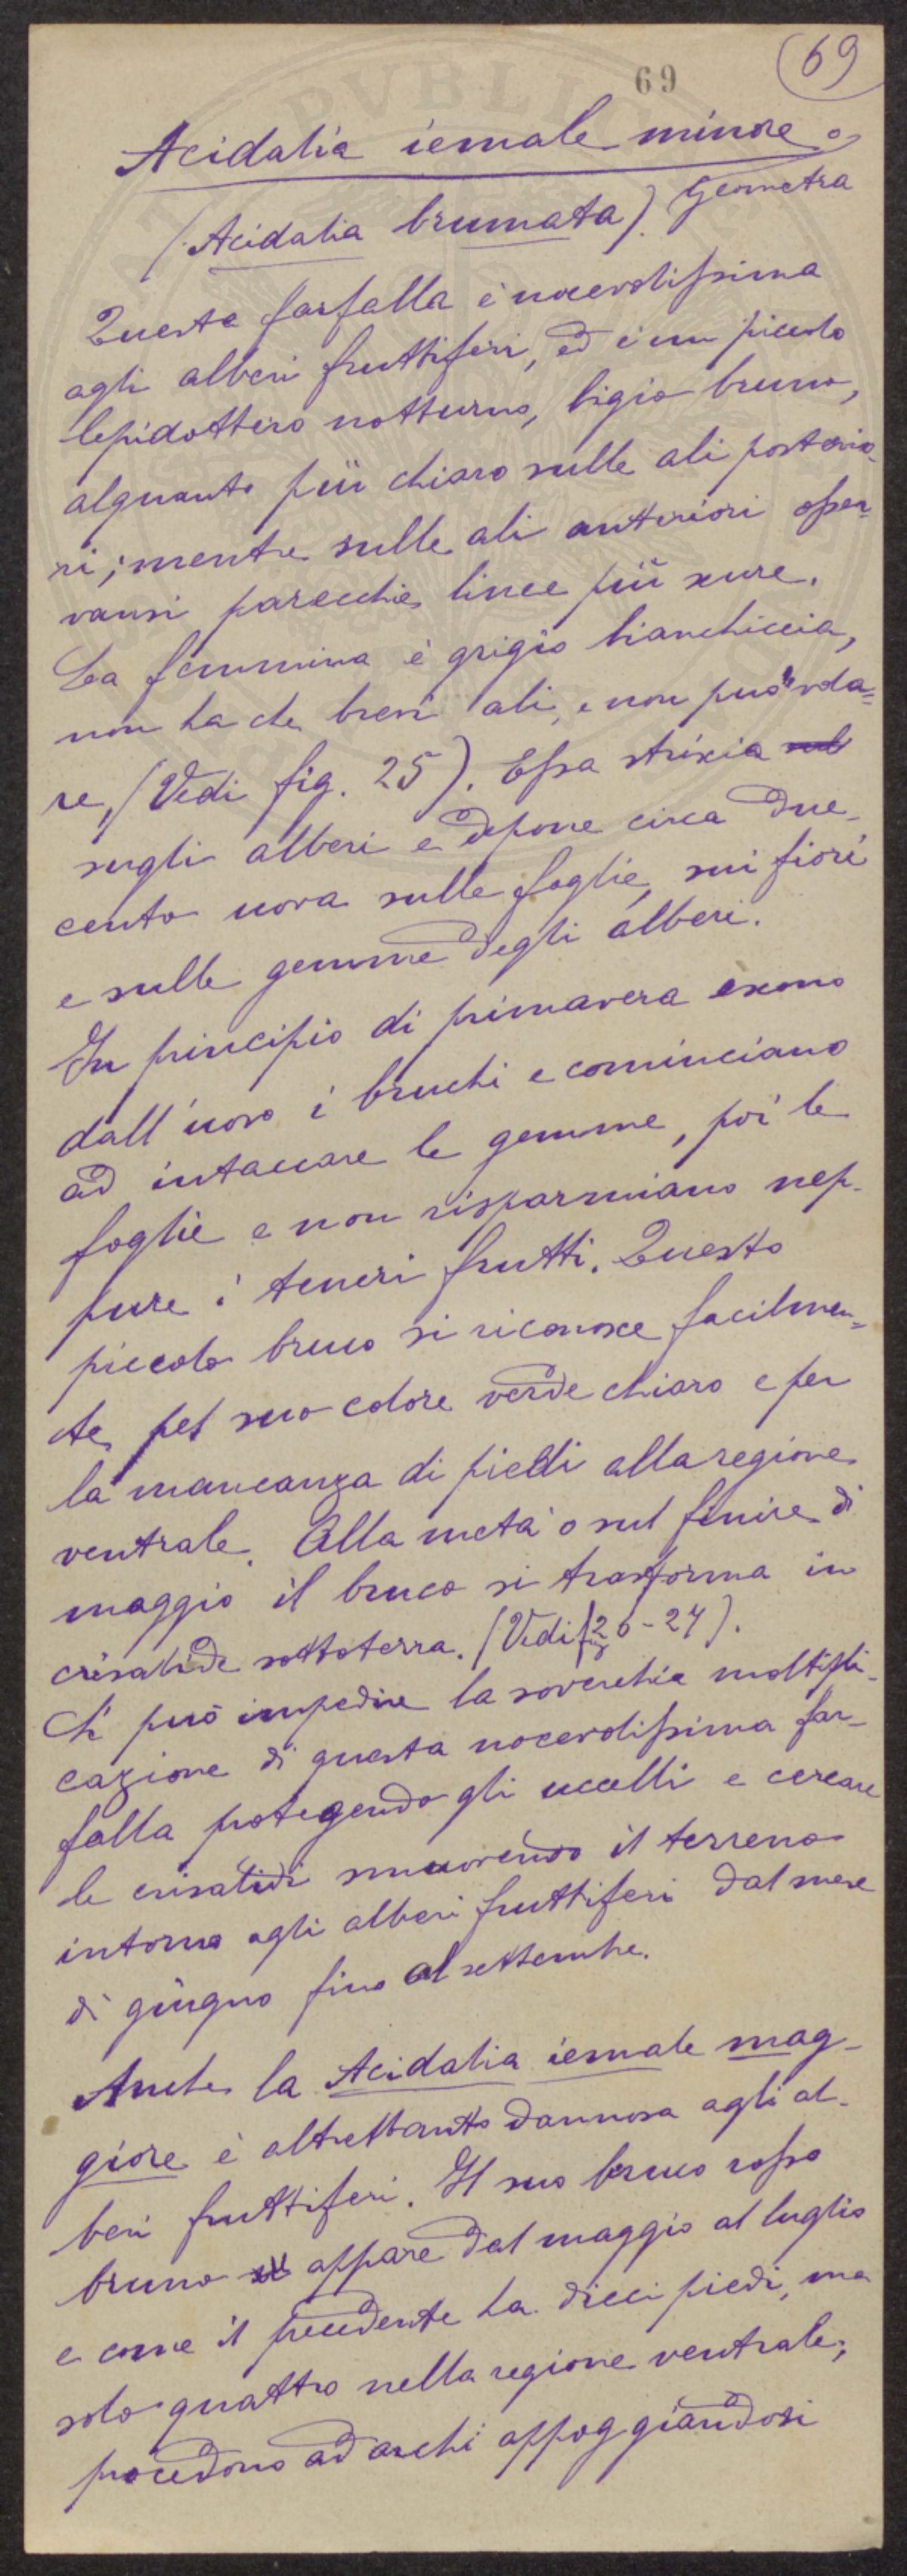 69
69
Acidalia iemale minore o
(Acidalia brumata). Geometra
Questa farfalla è nocevolissima
agli alberi fruttiferi, ed è un piccolo
lepidottero notturno, bigio bruno,
alquanto più chiaro sulle ali posterio-
ri; mentre sulle ali anteriori osser-
vansi parecchie linee più scure.
La femmina è grigio bianchiccia,
non ha che brevi ali, e non può vola=
re, (Vedi fig. 25). Essa striscia sul
sugli alberi e depone circa due-
cento uova sulle foglie, sui fiori
e sulle gemme degli alberi.
In principio di primavera escono
dall'uovo i bruchi e cominciano
ad intaccare le gemme, poi le
foglie e non risparmiano nep-
pure i teneri frutti. Questo
piccolo bruco si riconosce facilmen=
te, pel suo colore verde chiaro e per
la mancanza di piedi alla regione
ventrale. Alla metà o sul finire di
maggio il bruco si trasforma in
crisalide sottoterra. (Vedi fig 26-27).
Si può impedire la soverchia moltipli-
cazione di questa nocevolissima far-
falla protegendo gli uccelli e cercare
le crisalidi smuovendo il terreno
intorno agli alberi fruttiferi dal mese
di giugno fino al settembre.
Anche la Acidalia iemale mag-
giore è altrettanto dannosa agli al-
beri fruttiferi. Il suo bruco rosso
bruno appare dal maggio al luglio
e come il precedente ha dieci piedi, ma
solo quattro nella regione ventrale;
procedono ad archi appoggiandosi